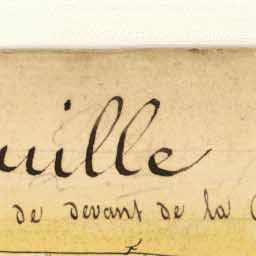 uille
de devant de la